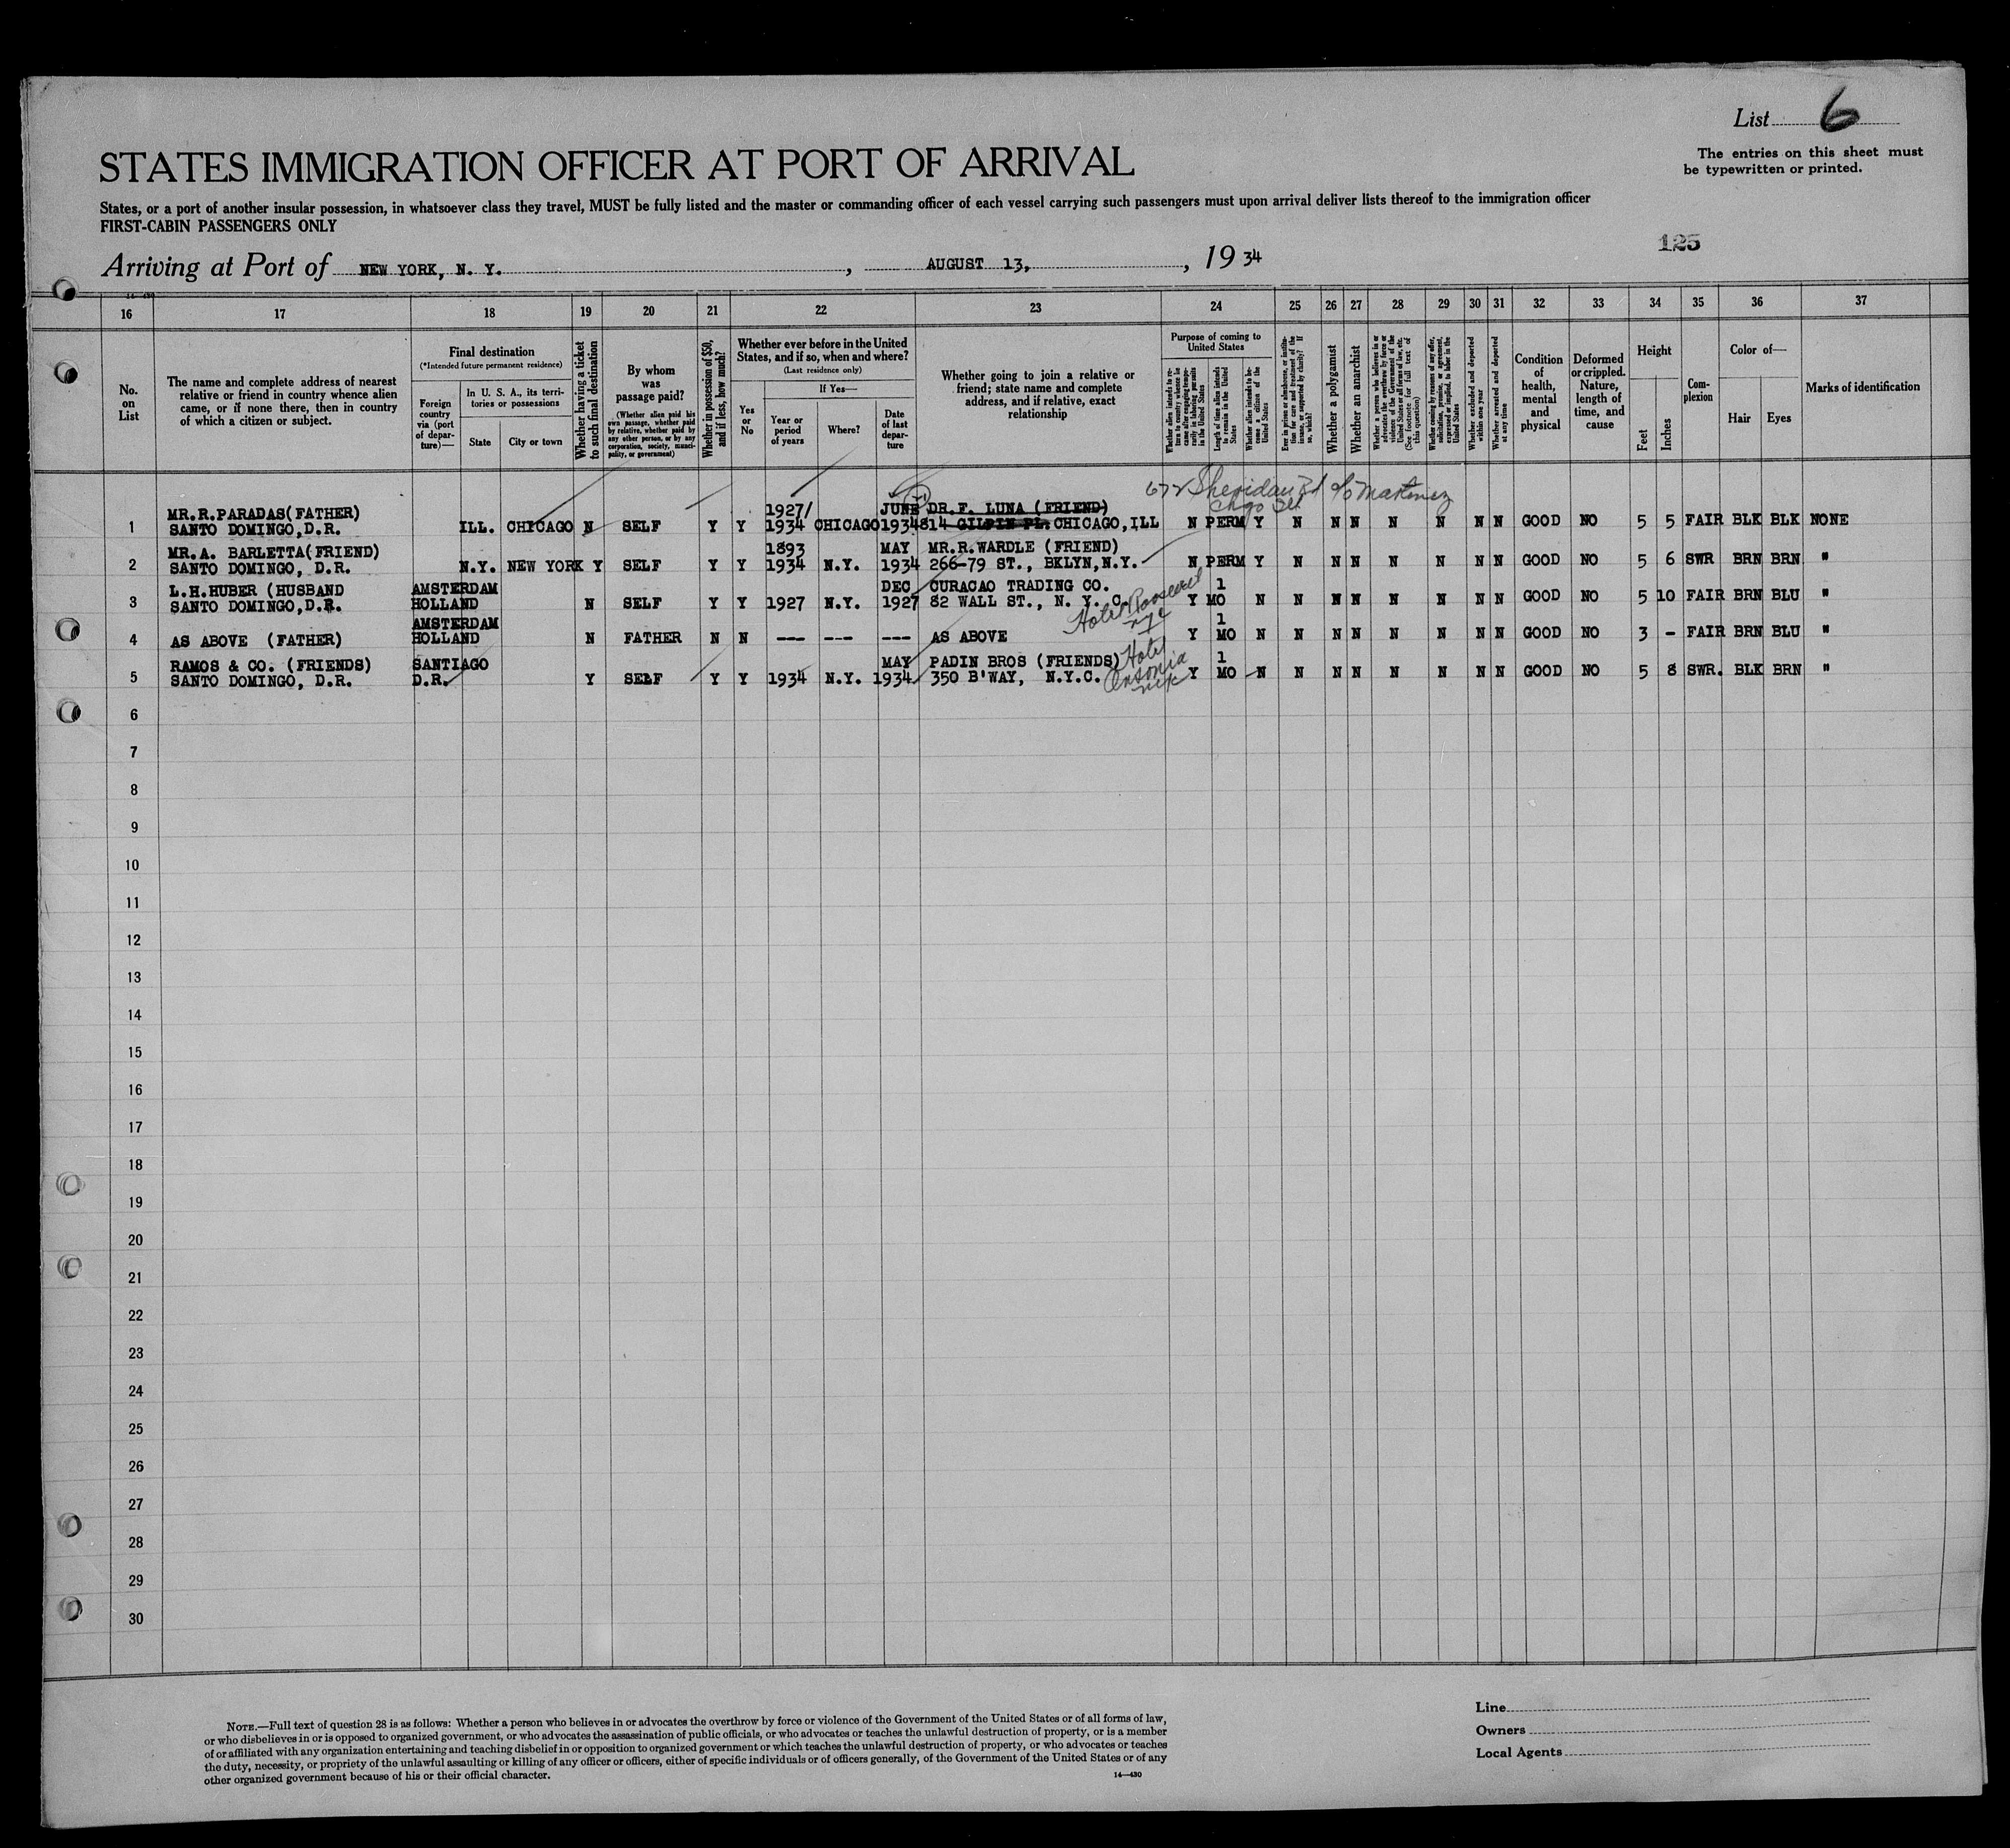 List 6
The entries on this sheet must
be typewritten or printed.
STATES IMMIGRATION OFFICER AT PORT OF ARRIVAL
States, or a port of another insular possession, in whatsoever class they travel, MUST be fully listed and the master or commanding officer of each vessel carrying such passengers must upon arrival deliver lists thereof to the immigration officer
FIRST-CABIN PASSENGERS ONLY
125
Arriving at Port of NEW YORK, N. Y. , AUGUST 13, , 19 34
16 17 18 19 20 21 22 23 24 25 26 27 28 29 30 31 32 33 34 35 36 37
No. on List
The name and complete address of nearest relative or friend in country whence alien came, or if none there, then in country of which a citizen or subject.
Final destination
(*Intended future permanent residence)
Foreign country via (port of departure)—
In U. S. A., its territories or possessions
State
City or town
Whether having a ticket to such final destination
By whom was passage paid?
(Whether alien paid his own passage, whether paid by relative, whether paid by any other person, or by any corporation, society, municipality, or government)
Whether in possession of $50, and if less, how much?
Whether ever before in the United States, and if so, when and where?
(Last residence only)
Yes or No
If Yes—
Year or period of years
Where?
Date of last departure
Whether going to join a relative or friend; state name and complete address, and if relative, exact relationship
Purpose of coming to United States
Whether alien intends to return to country whence he came after engaging temporarily in laboring pursuits in the United States
Length of time alien intends to remain in the United States
Whether alien intends to become a citizen of the United States
Ever in prison or almshouse, or institution for care and treatment of the insane, or supported by charity? If so, which?
Whether a polygamist
Whether an anarchist
Whether a person who believes in or advocates the overthrow by force or violence of the Government of the United States or all forms of law, etc. (See footnote for full text of this question)
Whether coming by reason of any offer, solicitation, promise, or agreement, expressed or implied, to labor in the United States
Whether excluded and deported within one year
Whether arrested and deported at any time
Condition of health, mental and physical
Deformed or crippled. Nature, length of time, and cause
Height
Feet
Inches
Complexion
Color of—
Hair
Eyes
Marks of identification
672 Sheridan Rd c/o Martinez
Chgo Ill.
MR.R.PARADAS(FATHER) 1927/ JUNE DR.F. LUNA (FRIEND)
1 SANTO DOMINGO,D.R. ILL. CHICAGO N SELF Y Y 1934 CHICAGO 1934 814 GILPIN PL. CHICAGO,ILL N PERM Y N N N N N N N GOOD NO 5 5 FAIR BLK BLK NONE
MR.A. BARLETTA(FRIEND) 1893 MAY MR.R.WARDLE (FRIEND)
2 SANTO DOMINGO, D.R. N.Y. NEW YORK Y SELF Y Y 1934 N.Y. 1934 266-79 ST., BKLYN,N.Y. N PERM Y N N N N N N N GOOD NO 5 6 SWR BRN BRN "
L.H.HUBER (HUSBAND AMSTERDAM DEC CURACAO TRADING CO. 1
3 SANTO DOMINGO,D.R. HOLLAND N SELF Y Y 1927 N.Y. 1927 82 WALL ST., N. Y. C. Y MO N N N N N N N N GOOD NO 5 10 FAIR BRN BLU "
Hotel Roosevelt
NYC
AMSTERDAM 1
4 AS ABOVE (FATHER) HOLLAND N FATHER N N --- --- --- AS ABOVE Y MO N N N N N N N N GOOD NO 3 - FAIR BRN BLU "
RAMOS & CO. (FRIENDS) SANTIAGO MAY PADIN BROS (FRIENDS) 1
5 SANTO DOMINGO, D.R. D.R. Y SELF Y Y 1934 N.Y. 1934 350 B'WAY, N.Y.C. Y MO N N N N N N N N GOOD NO 5 8 SWR. BLK BRN "
Hotel
Ansonia
NYC
6
7
8
9
10
11
12
13
14
15
16
17
18
19
20
21
22
23
24
25
26
27
28
29
30
NOTE.—Full text of question 28 is as follows: Whether a person who believes in or advocates the overthrow by force or violence of the Government of the United States or of all forms of law,
or who disbelieves in or is opposed to organized government, or who advocates the assassination of public officials, or who advocates or teaches the unlawful destruction of property, or is a member
of or affiliated with any organization entertaining and teaching disbelief in or opposition to organized government or which teaches the unlawful destruction of property, or who advocates or teaches
the duty, necessity, or propriety of the unlawful assaulting or killing of any officer or officers, either of specific individuals or of officers generally, of the Government of the United States or of any
other organized government because of his or their official character.
14—430
Line
Owners
Local Agents